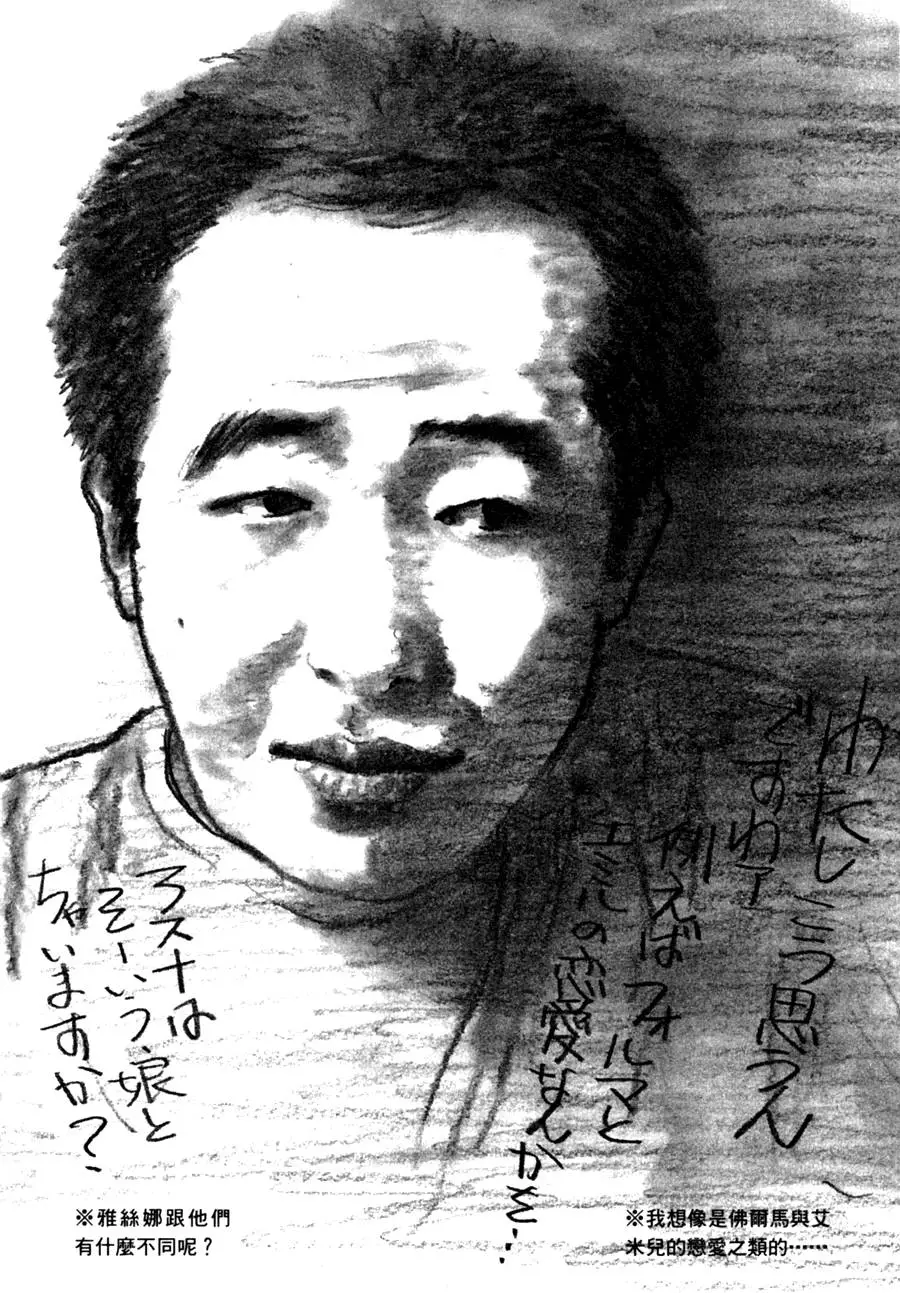 わたしこう思うん
ですわァ
例えばフォルマと
エミルの恋愛なんかを…
アスナは
そーいう娘と
ちゃいますか?
※我想像是佛爾馬與艾
米兒的戀愛之類的⋯⋯
※雅絲娜跟他們
有什麼不同呢？